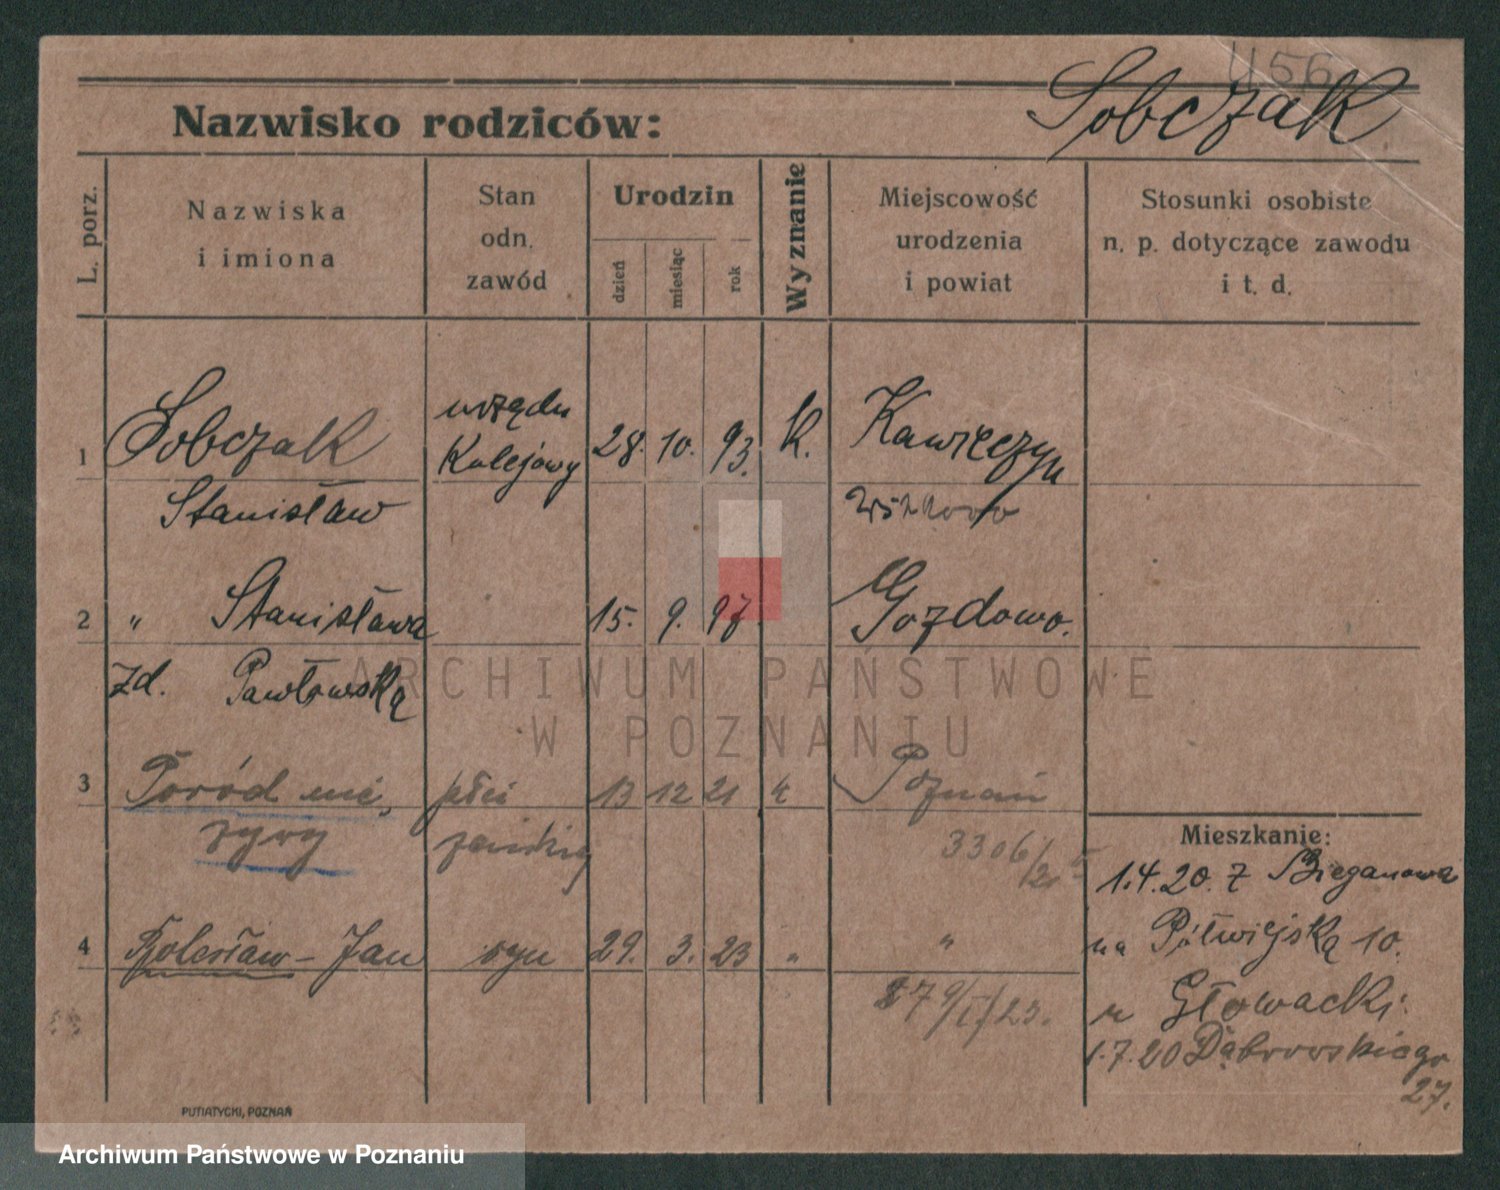 456
Nazwisko rodziców: Sobczak
L. porz.
Nazwiska
i imiona
Stan
odn.
zawód
Urodzin
dzień
miesiąc
rok
Wyznanie
Miejscowość
urodzenia
i powiat
Stosunki osobiste
n. p. dotyczące zawodu
i t. d.
urzędn
1 Sobczak Kolejowy 28. 10. 93. K. Kawęczyn
Stanisław
2 " Stanisława 15. 9. 97. Gozdowo.
zd. Pawłowską
3 Poród nie płci 13 12 21 K Poznań
żywy żeńskiej 3306/21
4 Bolesław - Jan syn 29. 3. 23 " "
879/II/23.
Mieszkanie:
1.4.20. z Bieganowa
na Półwiejską 10.
u Głowacki.
1.7.20 Dąbrowskiego
27.
PUTIATYCKI, POZNAŃ
ARCHIWUM PAŃSTWOWE
W POZNANIU
Archiwum Państwowe w Poznaniu